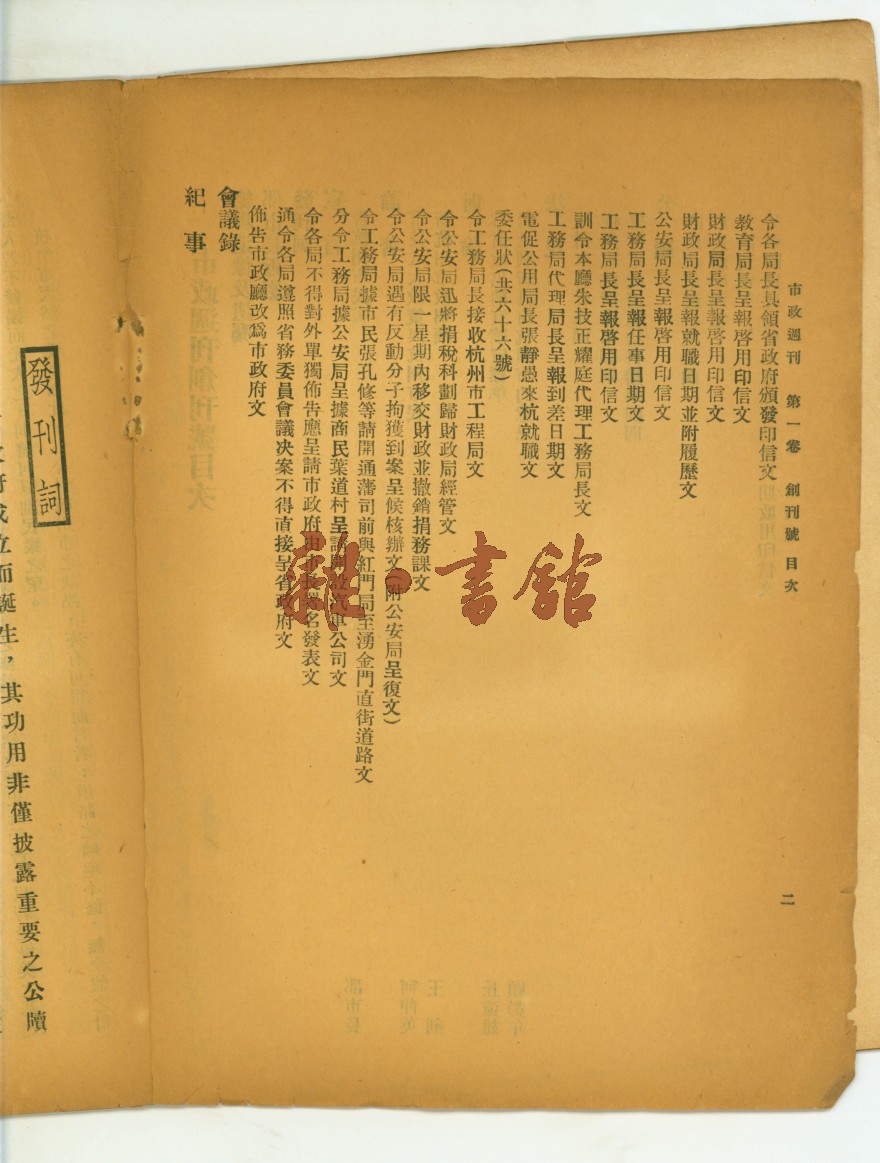 市政週刊　第一卷　創刊號　目次
二
令各局長具領省政府頒發印信文
教育局長呈報啓用印信文
財政局長呈報啓用印信文
財政局長呈報就職日期並附履歷文
公安局長呈報啓用印信文
工務局長呈報任事日期文
工務局長呈報啓用印信文
訓令本廳朱技正耀庭代理工務局長文
工務局代理局長呈報到差日期文
電促公用局長張靜愚來杭就職文
委任狀(共六十六號)
令工務局長接收杭州市工程局文
令公安局迅將捐稅科劃歸財政局經管文
令公安局限一星期內移交財政並撤銷捐務課文
令公安局遇有反動分子拘獲到案呈候核辦文(附公安局呈復文)
令工務局據市民張孔修等請開通藩司前與紅門局至湧金門直街道路文
分令工務局據公安局呈據商民葉道村呈請開設汽車公司文
令各局不得對外單獨佈告應呈請市政府由市長署名發表文
通令各局遵照省務委員會議决案不得直接呈省政府文
佈告市政廳改爲市政府文
會議錄
紀事
發刊詞
成立而誕生，其功用非僅披露重要之公牘
雜·書館